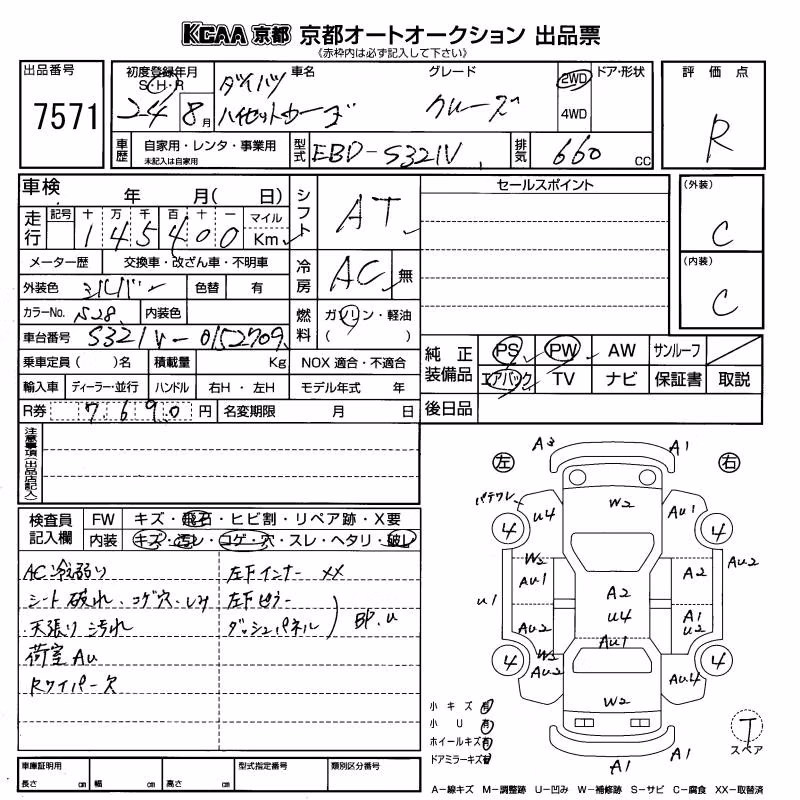 KCAA 京都 京都オートオークション 出品票
《赤枠内は必ず記入して下さい》
出品番号
7571
初度登録年月
S・H・R
24 8 月
車名
ダイハツ
ハイゼットカーゴ
グレード
クルーズ
2WD
4WD
ドア・形状
評価点
R
車歴
自家用・レンタ・事業用
未記入は自家用
型式
EBD-S321V
排気
660 CC
車検 年 月( 日)
走行
記号 十 万 千 百 十 一 マイル
1 4 5 4 0 0 Km
メーター歴 交換車・改ざん車・不明車
外装色 シルバー 色替 有
カラーNo. S28 内装色
車台番号 S321V-0152709
乗車定員( )名 積載量 Kg NOX 適合・不適合
輸入車 ディーラー・並行 ハンドル 右H・左H モデル年式 年
R券 7,690 円 名変期限 月 日
シフト AT
冷房 AC 無
燃料 ガソリン・軽油
( )
セールスポイント
(外装)
C
(内装)
C
純正装備品
PS PW AW サンルーフ
エアバック TV ナビ 保証書 取説
後日品
注意事項(出品店記入)
検査員記入欄
FW キズ・飛石・ヒビ割・リペア跡・X要
内装 キズ・汚レ・コゲ・穴・スレ・ヘタリ・破レ
AC冷弱り
シート 破れ、コゲ穴、しみ
天張り 汚れ
荷室 Au
Rワイパー欠
左Fインナー XX
左Fピラー
ダッシュパネル
BP.u
左
右
A3
A1
パテワレ
U4
W2
Au1
4
4
W2
Au1
A2
Au2
U1
A2
U4
Au2
A1
U2
Au1
4
4
W2
Au2
Au4
W2
A1
A1
小キズ 有
小U 有
ホイールキズ 有
ドアミラーキズ 有
T
スペア
A-線キズ M-調整跡 U-凹み W-補修跡 S-サビ C-腐食 XX-取替済
車庫証明用
長さ cm 幅 cm 高さ cm
型式指定番号
類別区分番号